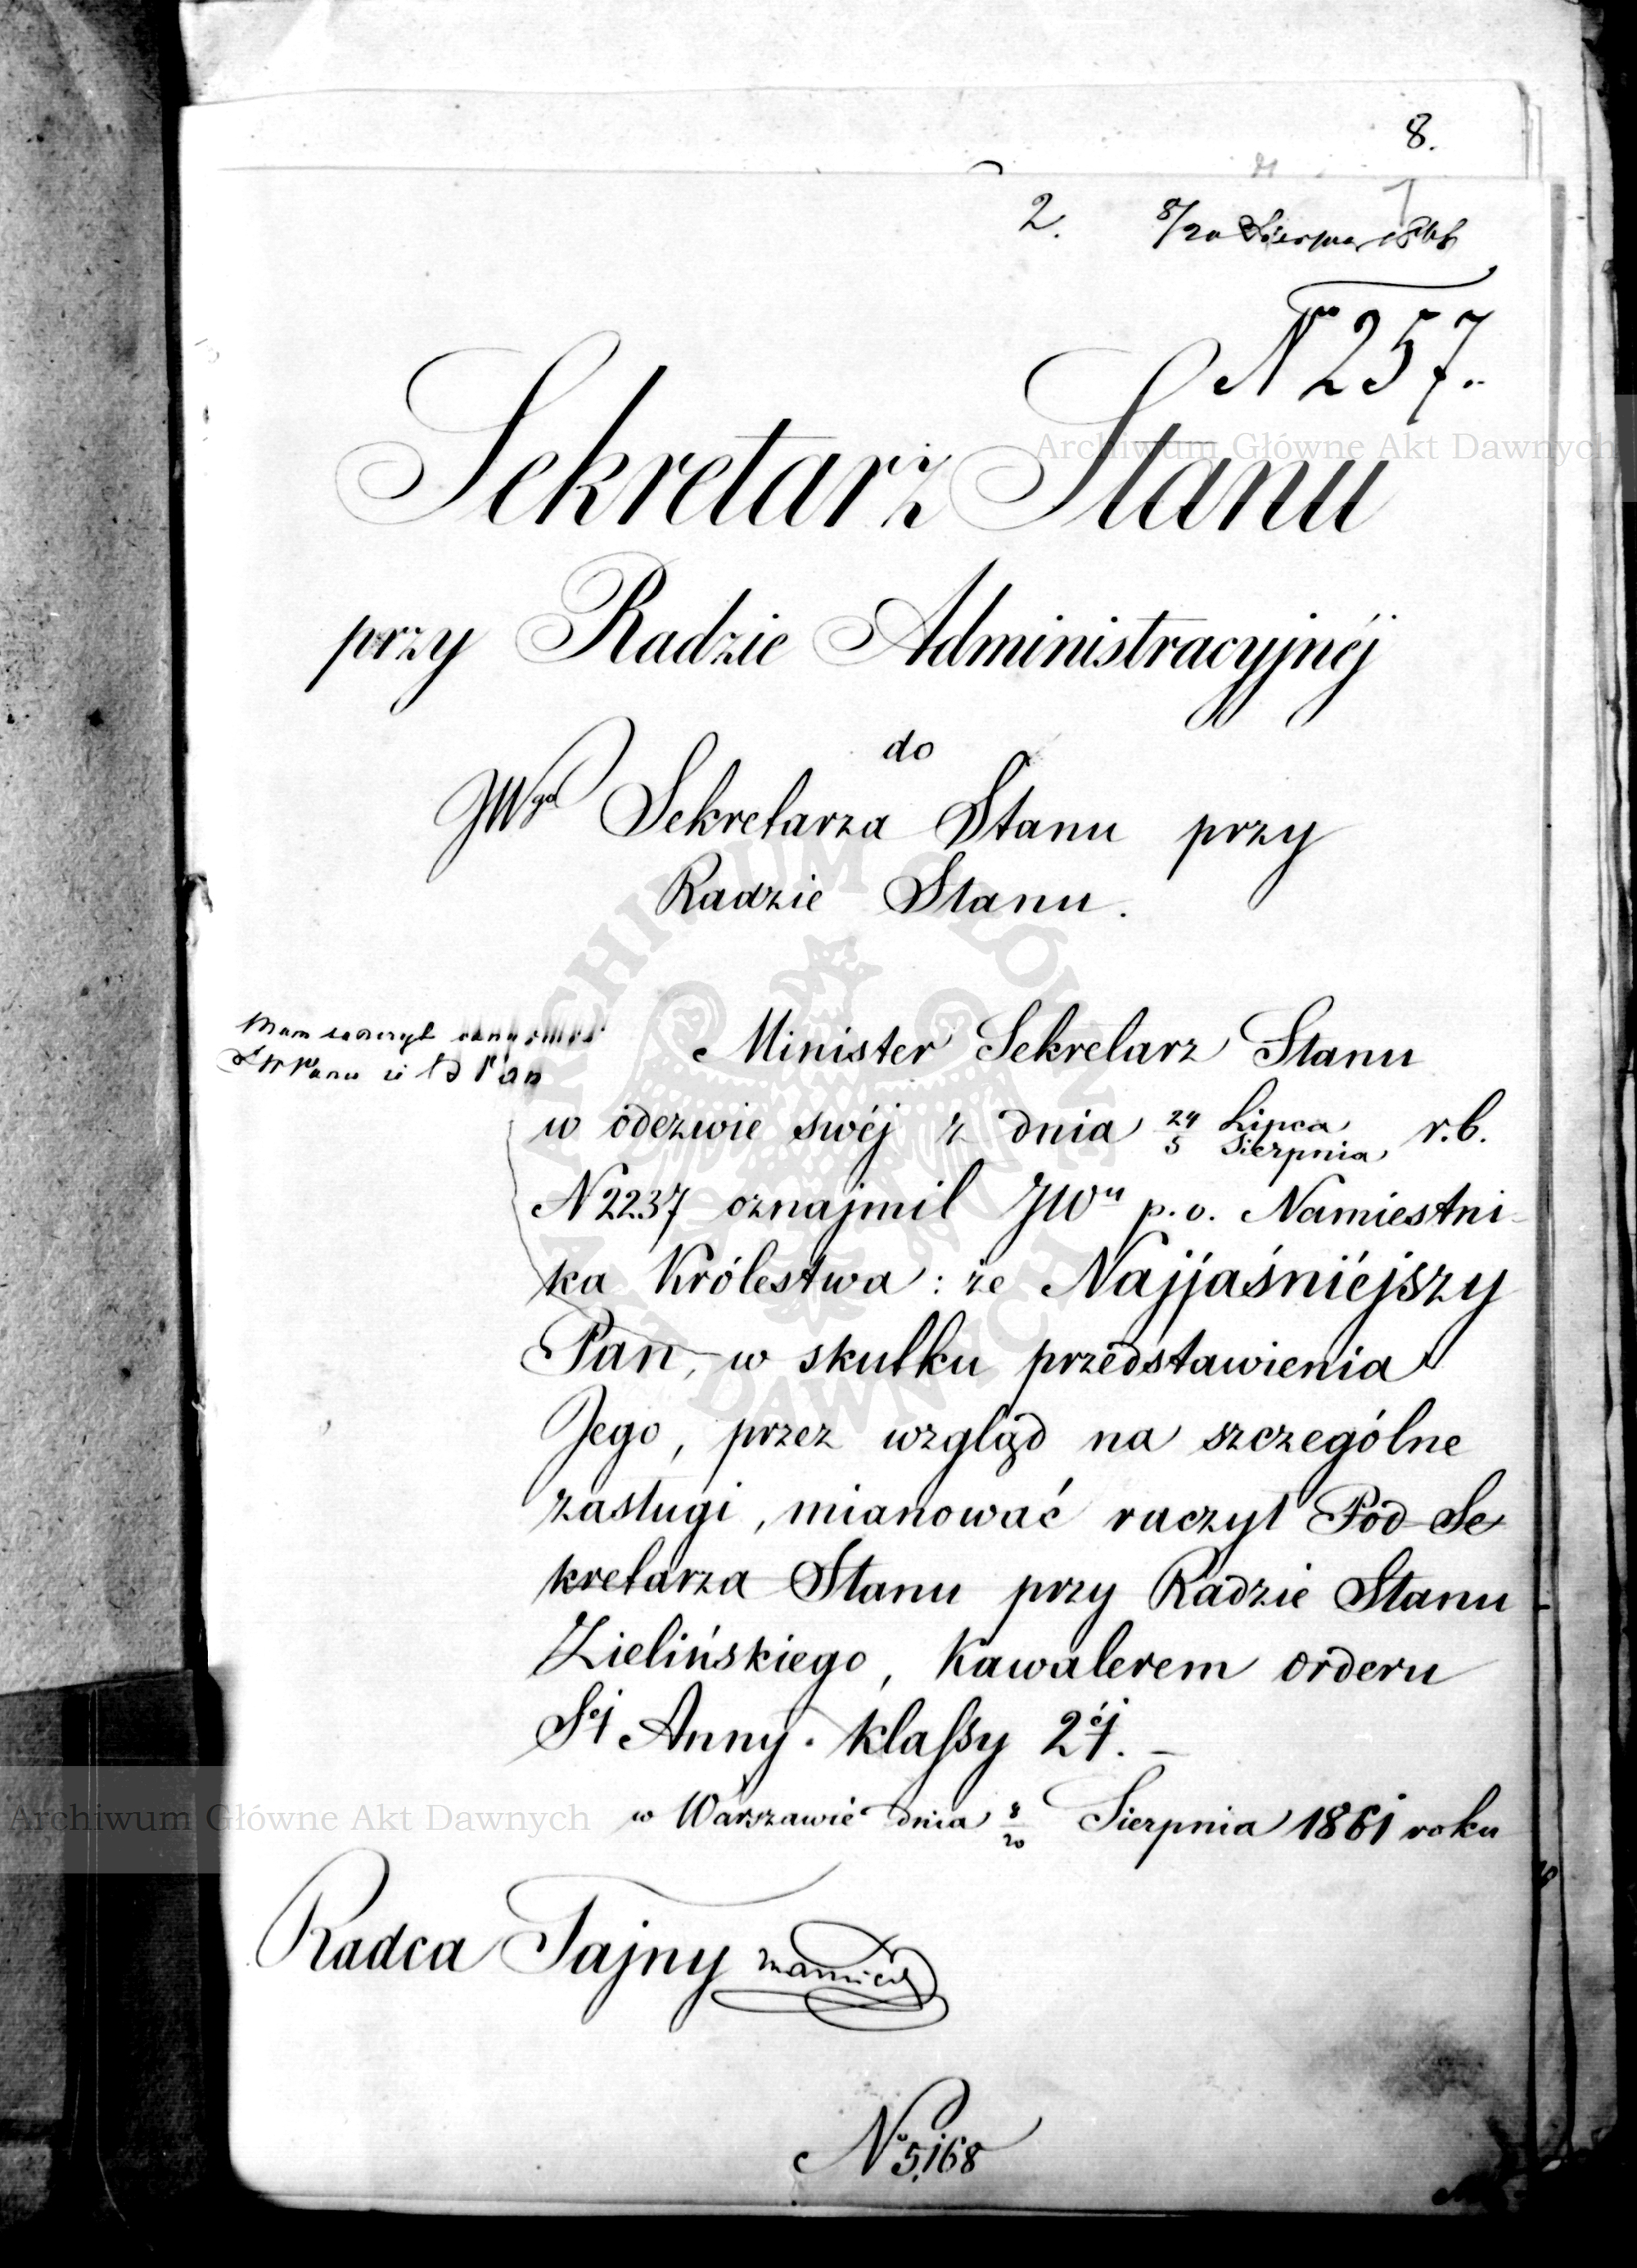 8.
2. 8/20 Sierpnia
No 257.
Sekretarz Stanu
przy Radzie Administracyjnéj
do
JWgo Sekretarza Stanu przy
Radzie Stanu.
Mam zaszczyt
JWPanu iż
Minister Sekretarz Stanu
w odezwie swéj z dnia 24/5 Lipca/Sierpnia r.b.
N 2237 oznajmił JWu p.o. Namiestni-
ka Królestwa: że Najjaśniéjszy
Pan, w skutku przedstawienia
Jego, przez wzgląd na szczególne
zasługi, mianować raczył Pod-Se
kretarza Stanu przy Radzie Stanu
Zielińskiego, Kawalerem orderu
Séj Anny klassy 2éj. –
w Warszawie dnia 8/20 Sierpnia 1861 roku
Radca Tajny
No 5,168
Archiwum Główne Akt Dawnych
Archiwum Główne Akt Dawnych
ARCHIWUM GŁÓWNE AKT DAWNYCH